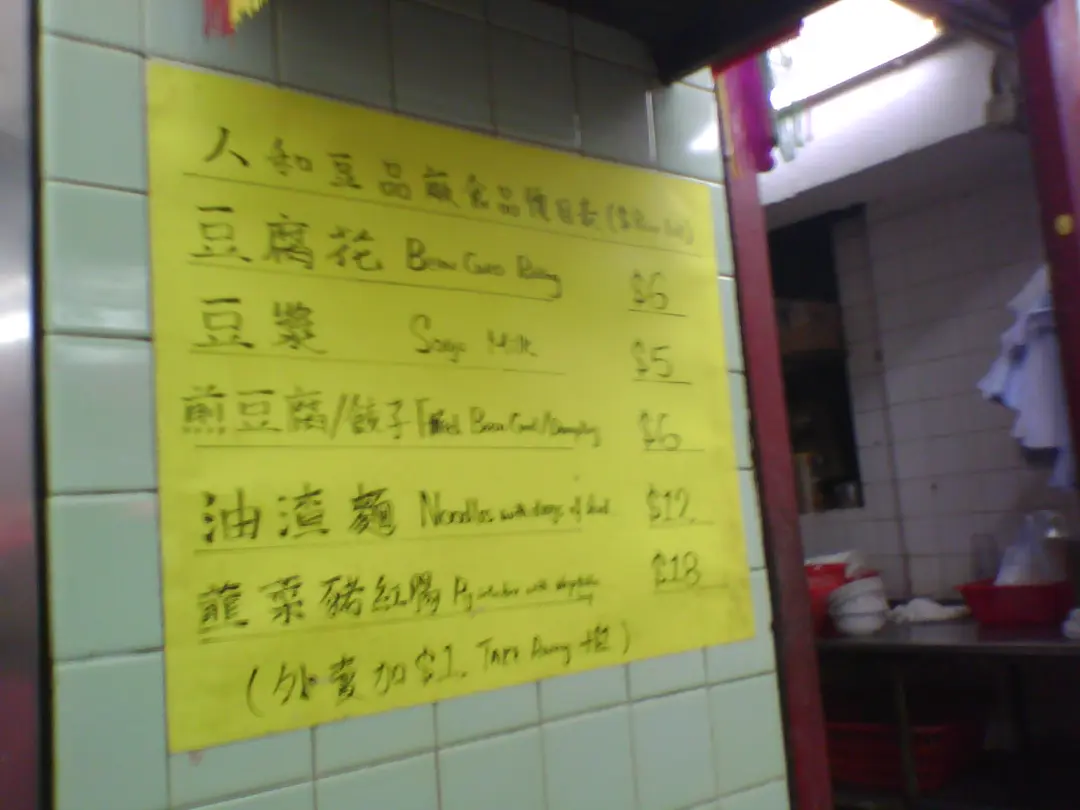 人和豆品鹹食品價目表
豆腐花 Bean Curd $6
豆漿 Soya Milk $5
煎豆腐/餃子 Fried Bean Curd/Dumpling $6
油渣麵 Noodles with dregs of lard $12
菜豬紅腸 Pig with vegetables $18
(外賣加$1. Take Away)